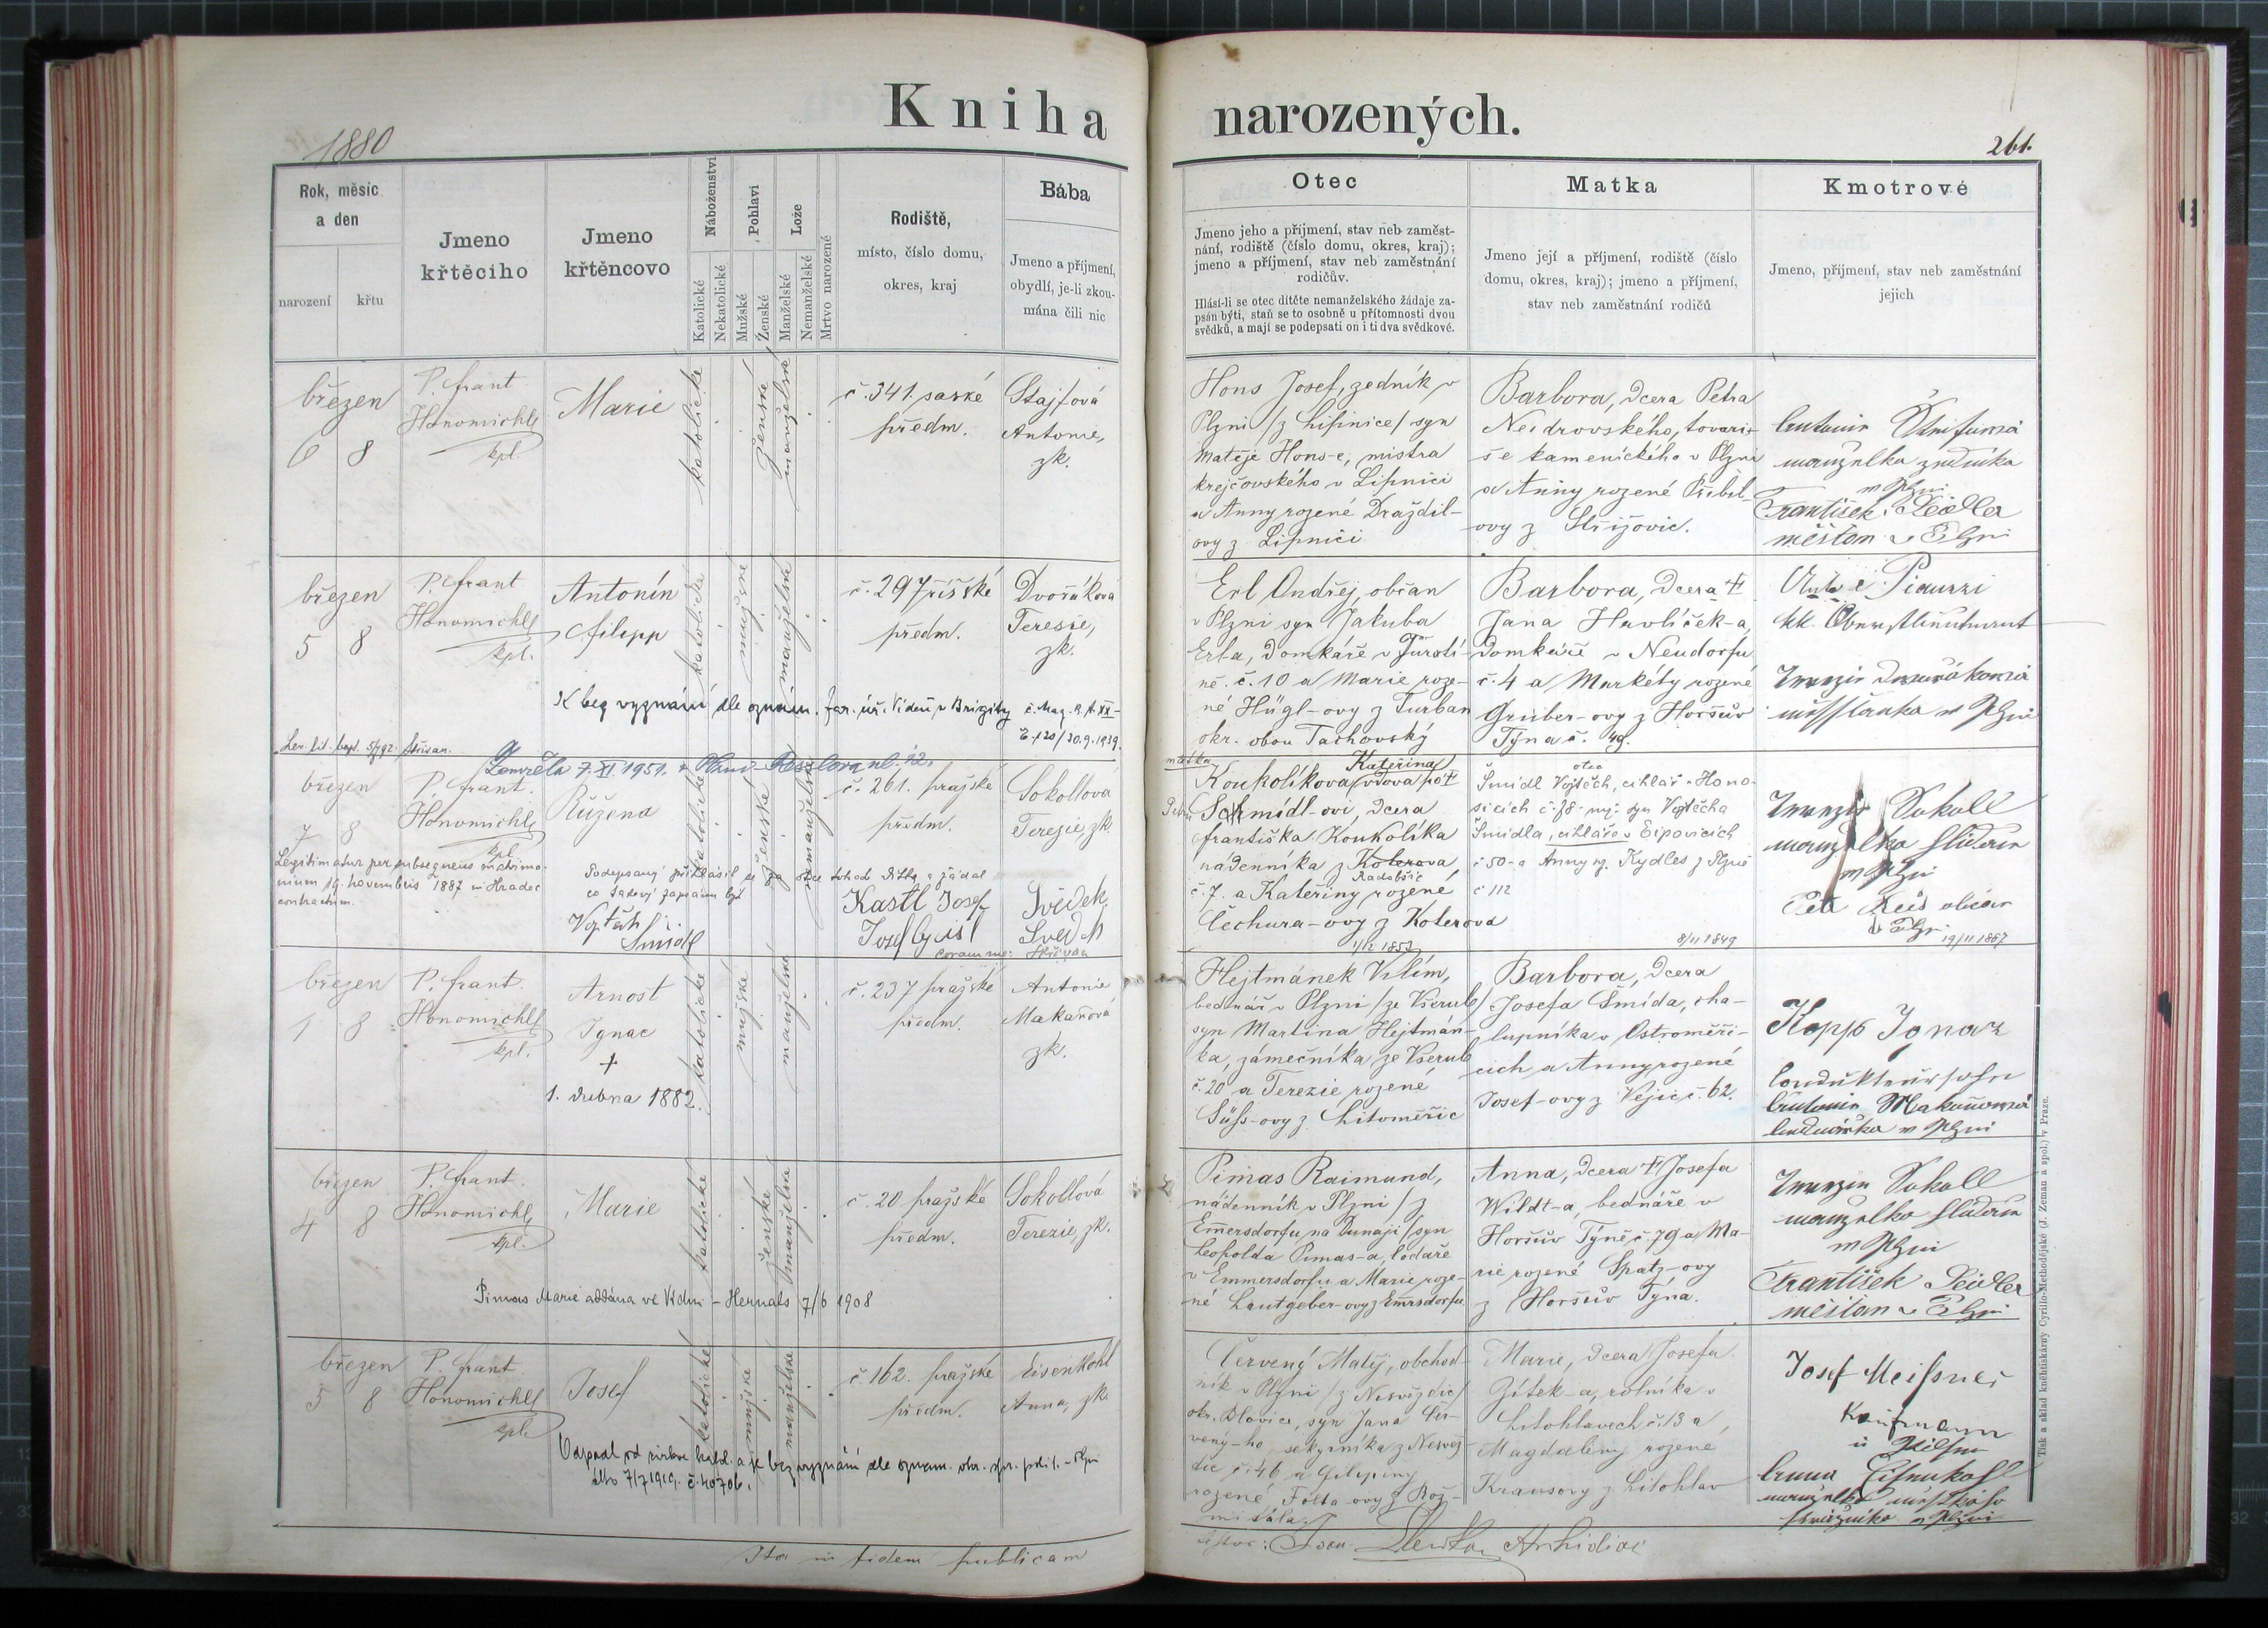 Kniha narozených.
1880
261.
Rok, měsíc
a den
narození
křtu
Jmeno
křtěcího
Jmeno
křtěncovo
Náboženství
Katolické
Nekatolické
Pohlaví
Mužské
Ženské
Lože
Manželské
Nemanželské
Mrtvo narozené
Rodiště,
místo, číslo domu,
okres, kraj
Bába
Jmeno a příjmení,
obydlí, je-li zkou-
mána čili nic
Otec
Jmeno jeho a příjmení, stav neb zaměst-
nání, rodiště (číslo domu, okres, kraj);
jmeno a příjmení, stav neb zaměstnání
rodičův.
Hlásí-li se otec dítěte nemanželského žádaje za-
psán býti, staň se to osobně u přítomnosti dvou
svědků, a mají se podepsati on i ti dva svědkové.
Matka
Jmeno její a příjmení, rodiště (číslo
domu, okres, kraj); jmeno a příjmení,
stav neb zaměstnání rodičů
Kmotrové
Jmeno, příjmení, stav neb zaměstnání
jejich
březen
6 8
P. Frant.
Honomichl
kpl.
Marie
katolické
ženské
manželské
č. 341. saské
předm.
Stajfová
Antonie,
zk.
Hons Josef, zedník v
Plzni /z Lipinice/ syn
Matěje Hons-e, mistra
krejčovského v Lipnici
a Anny rozené Draždil-
ovy z Lipnici
Barbora, dcera Petra
Neidrovského, tovary-
še kamenického v Plzni
a Anny rozené Přibil-
ovy z Střížovic.
manželka zedníka
v Plzni
František Seidler
měšťan v Plzni
březen
5 8
P. Frant
Honomichl
kpl.
Antonín
Filipp
katolické
mužské
manželské
č. 297 říšské
předm.
Dvořáková
Teresie,
zk.
K bez vyznání dle oznám. far. úř. Vídeň u Brigity č. Mag. B. A. XX-
E-120/30.9.1939.
Erl Ondřej, občan
v Plzni syn Jakuba
Erla, domkáře v Turati-
ně. č. 10 a Marie roze-
né Hügl-ovy z Turban
okr. obou Tachovský
Barbora, dcera †
Jana Havlíček-a,
domkáře v Neudorfu
č. 4 a Markéty rozené
Gruber-ovy z Horšův
Týna č. 49.
kk. Oberstlieutenant
v Plzni
Zemřela 7. XI 1951.
březen
7 8
P. Frant.
Honomichl
kpl.
Růžena
katolické
ženské
nemanželské
č. 261. pražské
předm.
Sokollová
Terezie, zk.
Legitimatur per subsequens matrimo-
nium 19. novembris 1887 in Hradec
contractum.
Podepsaný přihlásil se za otce tohoto dítka a žádal
co takový zapsán být
Vojtěch
Šmídl
Kastl Josef Svědek
Svědek
coram me:
matka
Kateřina
Koukolíkova, vdova po †
Schmídl-ovi, dcera
Františka Koukolíka
nádenníka z Koterova
Radobčic
č. 7. a Kateřiny rozené
Čechura-ovy z Koterova
1/12 1853
otec
Šmídl Vojtěch, cihlář v Hono-
sicích č. 78. syn Vojtěcha
Šmídla, cihláře v Eipovicích
č 50 a Anny roz. Kydles z Plzně
č 112
8/11 1849
Sokoll
manželka
v Plzni
Petr
19/11 1887
březen
1 8
P. Frant.
Honomichl
kpl.
Arnošt
Ignac
†
1. dubna 1882.
katolické
mužské
manželské
č. 237 pražské
předm.
Antonie
Makaňová
zk.
Hejtmánek Vilím,
bednář v Plzni /ze Všerub/
syn Martina Hejtmán-
ka, zámečníka ze Všerub
č. 20 a Terezie rozené
Süss-ovy z Litoměřic
Barbora, dcera
Josefa Šmída, cha-
lupníka v Ostroměři-
cich a Anny rozené
Josef-ovy z Vejic č. 62.
Kopp Ignaz
Makaňová
v Plzni
březen
4 8
P. Frant.
Honomichl
kpl.
Marie
katolické
ženské
manželské
č. 20 pražské
předm.
Sokollová
Terezie, zk.
Pimas Marie oddána ve Vídni - Hernals 7/6 1908
Pimas Raimund,
nádenník v Plzni /z
Emersdorfu na Dunaji/ syn
Leopolda Pimas-a, lodaře
v Emmersdorfu a Marie roze-
né Lautgeber-ovy z Emrsdorfu
Anna, dcera † Josefa
Wildt-a, bednáře v
Horšův Týně č. 79 a Ma-
rie rozené Spatz-ovy
z Horšův Týna.
Sokoll
manželka
v Plzni
František Seidler
měšťan v Plzni
březen
5 8
P. Frant.
Honomichl
kpl.
Josef
katolické
mužské
manželské
č. 162. pražské
předm.
Eisenkohl
Anna, zk.
7/7 1919. č. 40706.
Červený Matěj, obchod-
ník v Plzni /z Nesvězdic/
okr. Blovice, syn Jana Čer-
vený-ho, sekyrníka z Nesvěz-
dic č. 46 a Filipiny
rozené
Marie, dcera Josefa
Zítek-a, rolníka v
Litohlavech č. 13 a
Magdaleny rozené
Krausovy z Litohlav
Josef Meissner
Kaufmann
in Pilsen
Anna Eisenkohl
v Plzni
Ita in fidem publicam
Archidiac
Tisk a sklad knihtiskárny Cyrillo-Methodějské (J. Zeman a spol.) v Praze.